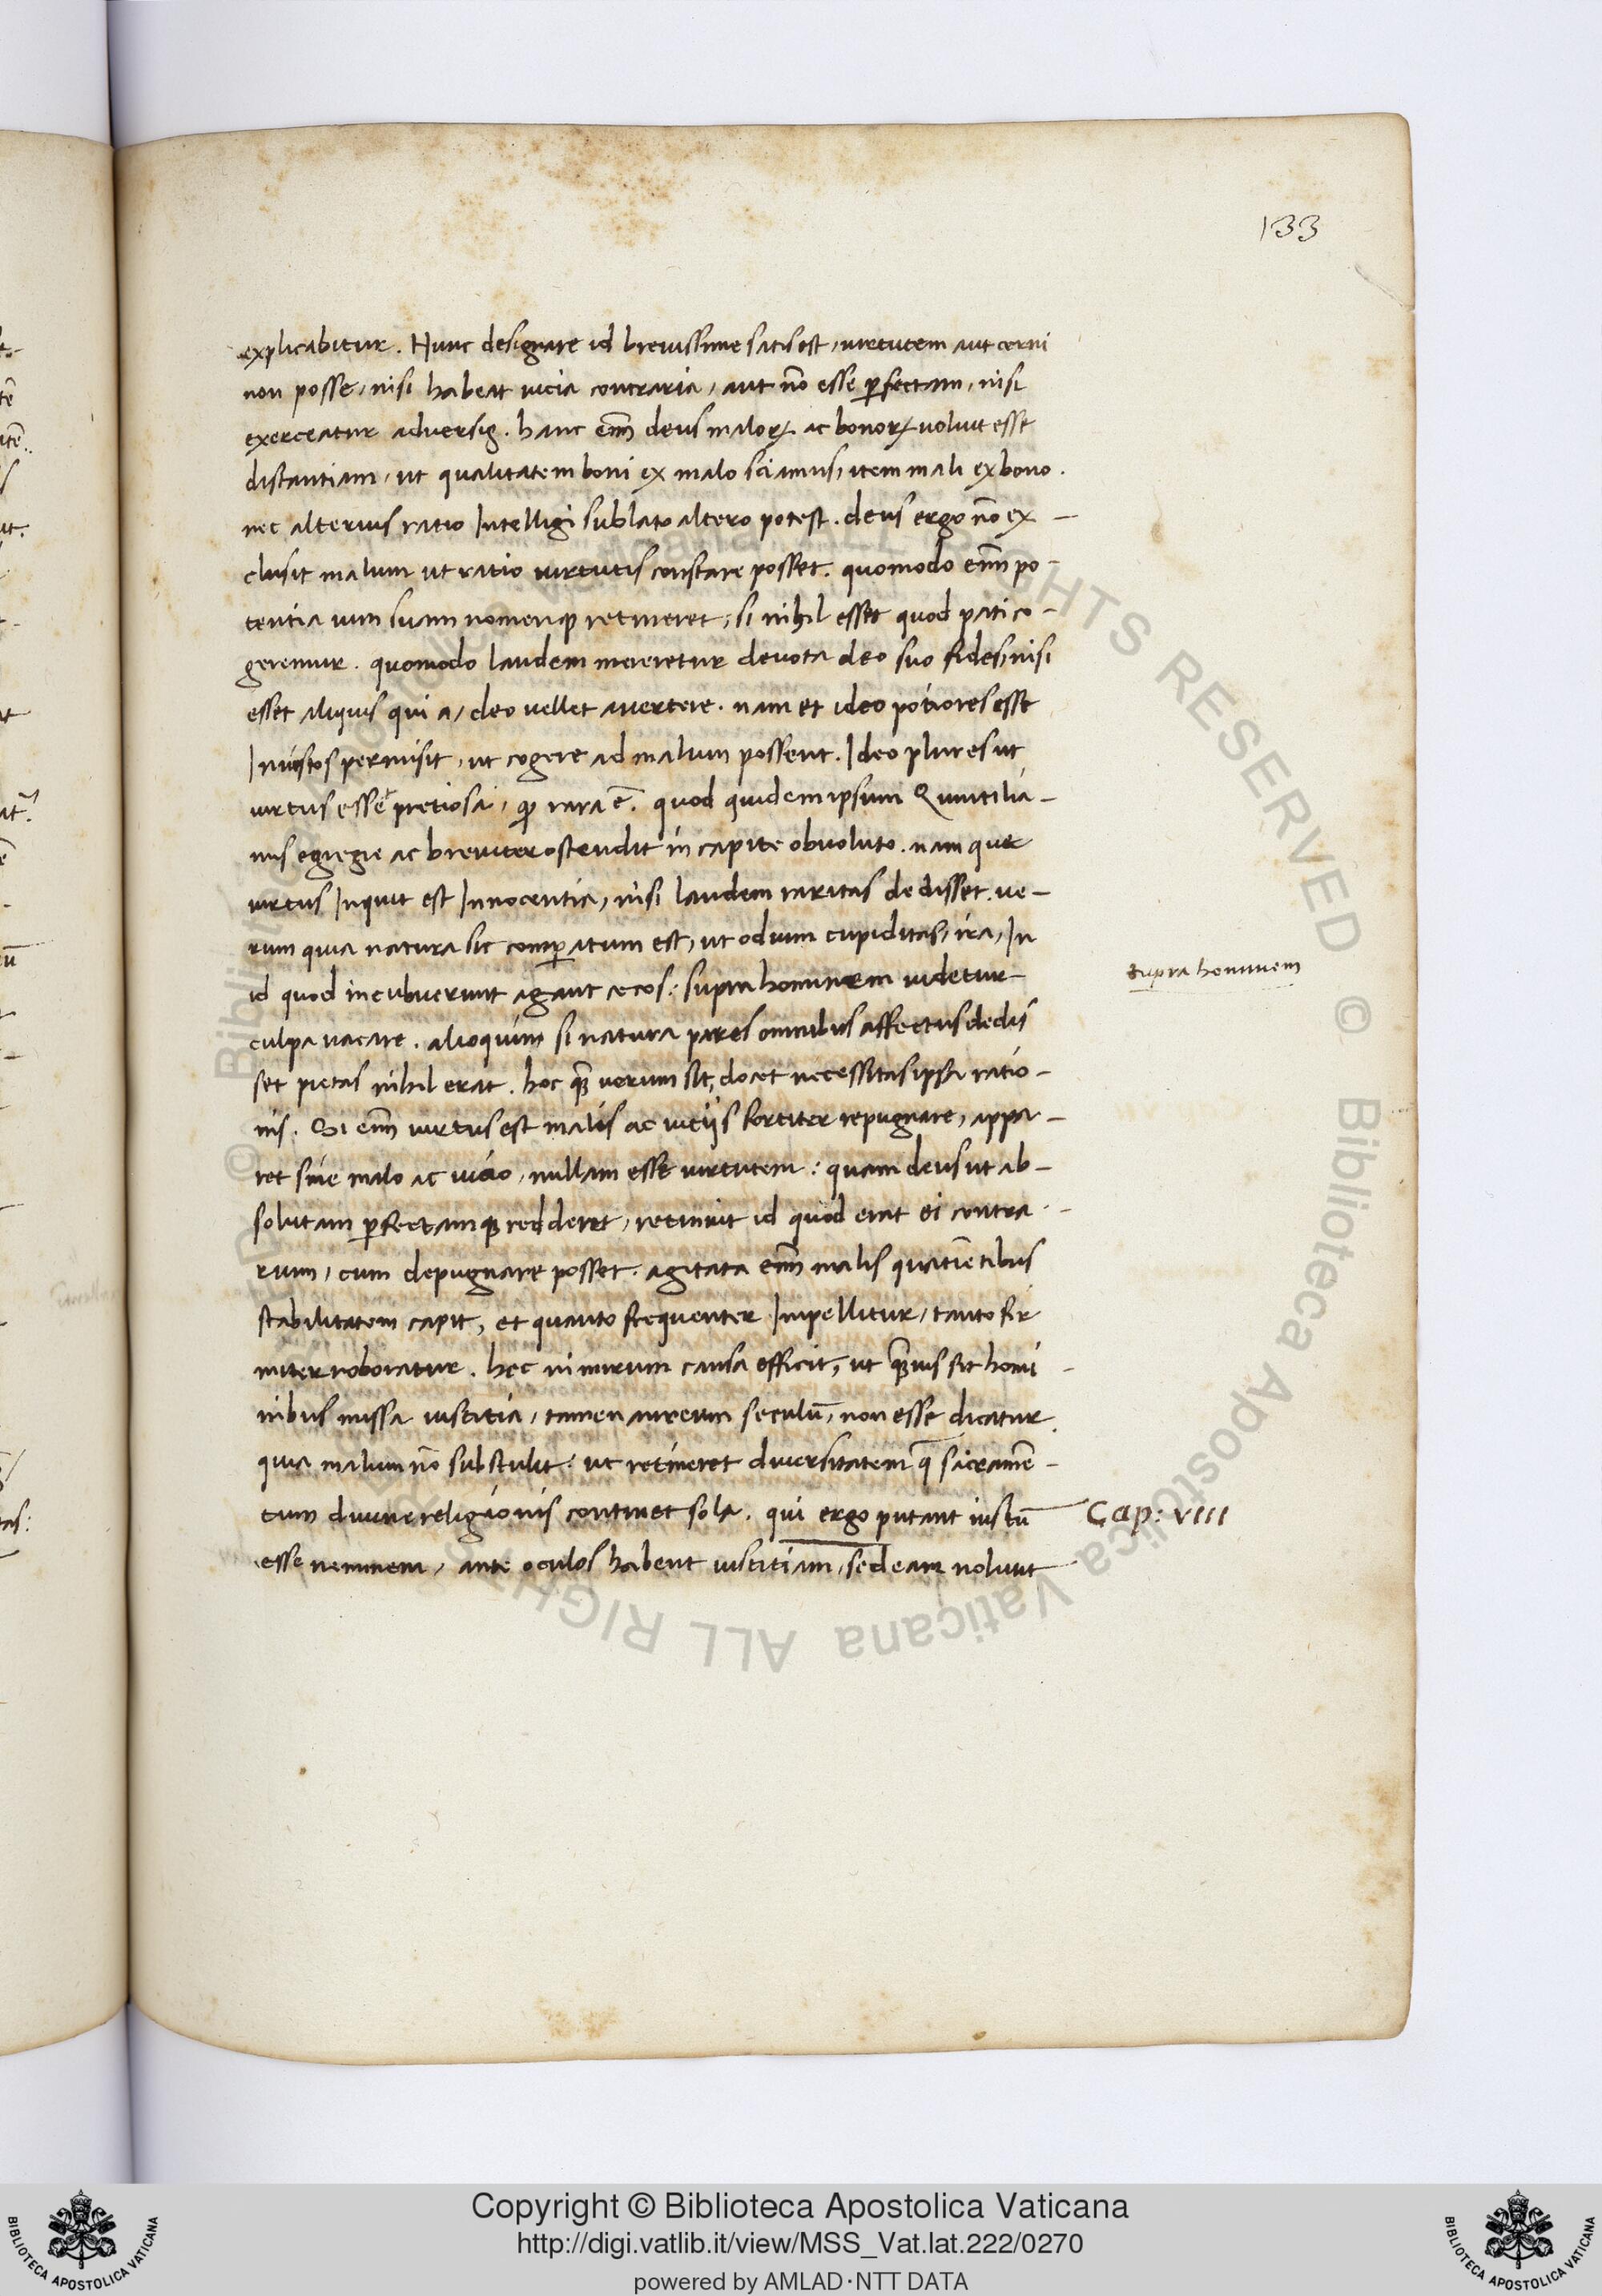 133
explicabitur. Nunc designare id breuissime satis est, uirtutem aut cerni
non posse, nisi habeat uicia contraria, aut nõ esse ꝑfectam, nisi
exerceatur aduersis. hanc eñi deus maloꝝ ac bonoꝝ uoluit esse
distantiam, ut qualitatem boni ex malo sciamus, item mali ex bono.
nec alterius ratio Intelligi sublato altero potest. deus ergo nõ ex-
clusit malum ut ratio uirtutis constare posset. quomodo eñi po-
tentia uim suam nomenqꝫ retineret, si nihil esset quod pati co-
geremur. quomodo laudem mereretur deuota deo suo fides, nisi
esset aliquis qui a, deo uellet auertere. nam et ideo potiores esse
Iniustos permisit, ut cogere ad malum possent. Ideo plures ut
uirtus esset pretiosa, qꝫ rara ẽ. quod quidem ipsum Quintilia-
nus egregie ac breuiter ostendit in capite obuoluto. nam que
uirtus Inquit est Innocentia, nisi laudem raritas dedisset. ue-
rum quia natura sic comꝑatum est, ut odium cupiditas, ira, In
id quod incubuerunt agant cecos: supra hominem uidetur
culpa uacare. alioquim si natura pares omnibus affectus dedis
set pietas nihil erat. hoc q̃ uerum sit, docet necessitas ipsa ratio-
nis. Si eñi uirtus est malis ac uiciis fortiter repugnare, appa-
ret sine malo ac uicio, nullam esse uirtutem: quam deus ut ab-
solutam ꝑfectamqꝫ redderet, retinuit id quod erat ei contra-
rium, cum depugnare posset. agitata eñi malis quatiẽtibus
stabilitatem capit, et quanto frequenter Impellitur, tanto fir
miter roboratur. hec nimirum causa efficit, ut q̃uis sit homi-
nibus missa iustitia, tamen aureum seculũ, non esse dicatur.
quia malum nõ substulit: ut retineret diuersitatem q̃ sacramẽ-
tum diuine religionis continet sola. qui ergo putant iustũ
esse neminem, ante oculos habent iustitiam, sed eam nolunt
supra hominem
Cap: VIII
© Biblioteca Apostolica Vaticana ALL RIGHTS RESERVED © Biblioteca Apostolica Vaticana ALL RIGHTS RESERVED
Copyright © Biblioteca Apostolica Vaticana
http://digi.vatlib.it/view/MSS_Vat.lat.222/0270
powered by AMLAD·NTT DATA
BIBLIOTECA APOSTOLICA VATICANA
BIBLIOTECA APOSTOLICA VATICANA